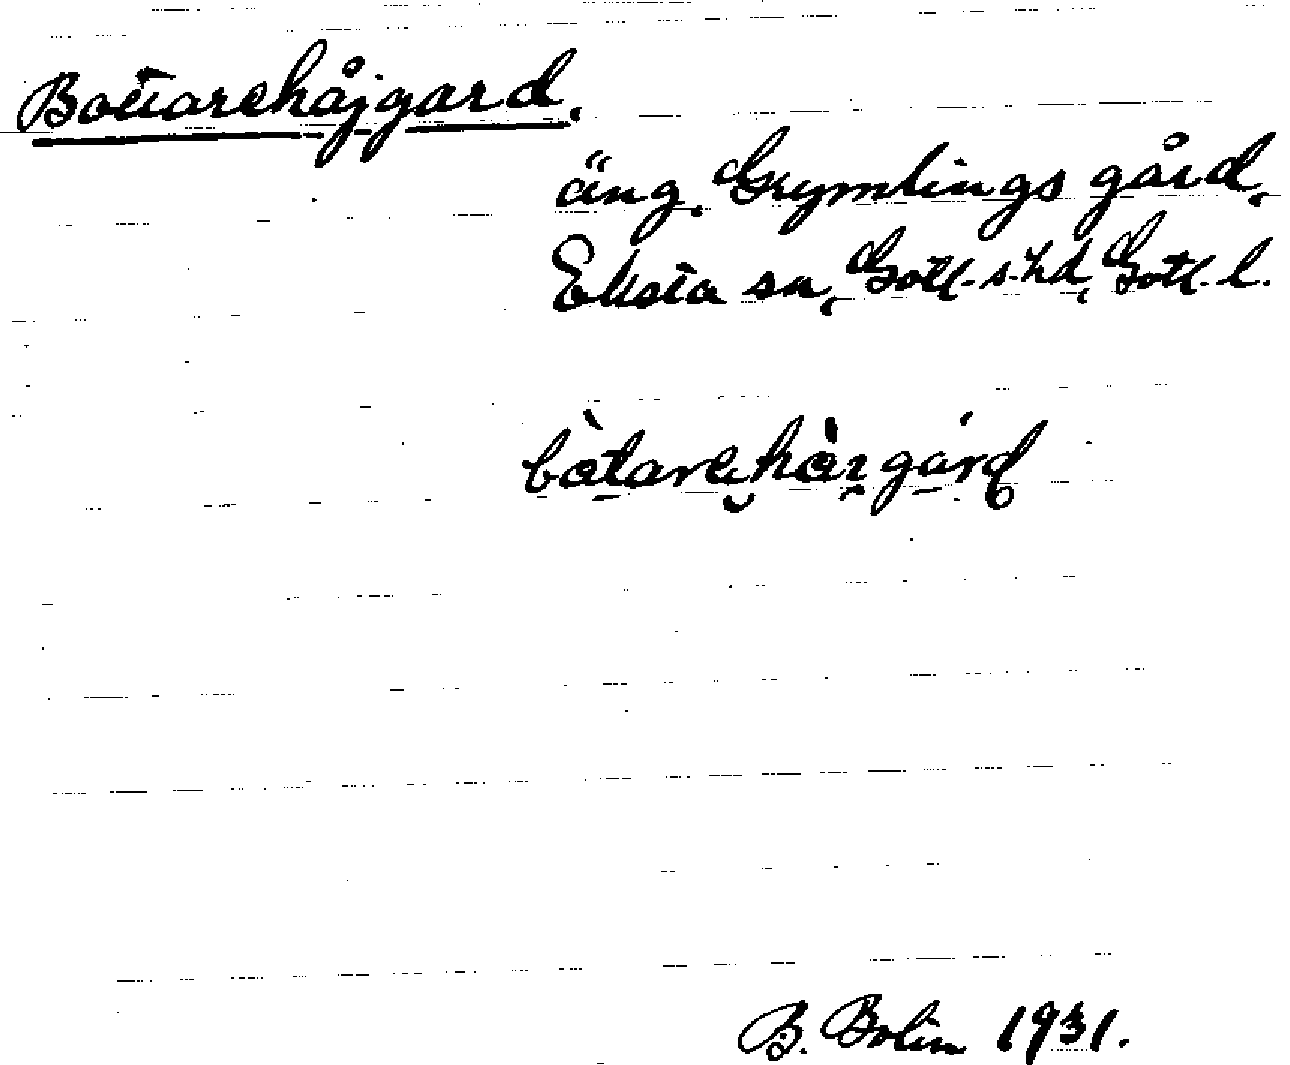 Bottarehåjgard.
äng. Grymlings gård,
Eksta sn, Gotl. s. hd, Gotl. l.
B. Bolin 1931.